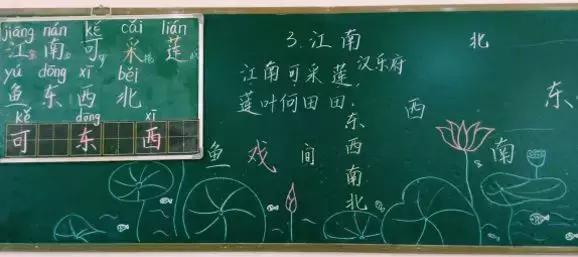 jiāng nán kě cǎi lián
江南可采莲
yú dōng xī běi
鱼东西北
kě dōng xī
可东西
3.江南
汉乐府
江南可采莲,
莲叶何田田.
鱼戏间
东西南北
北
西
东
南